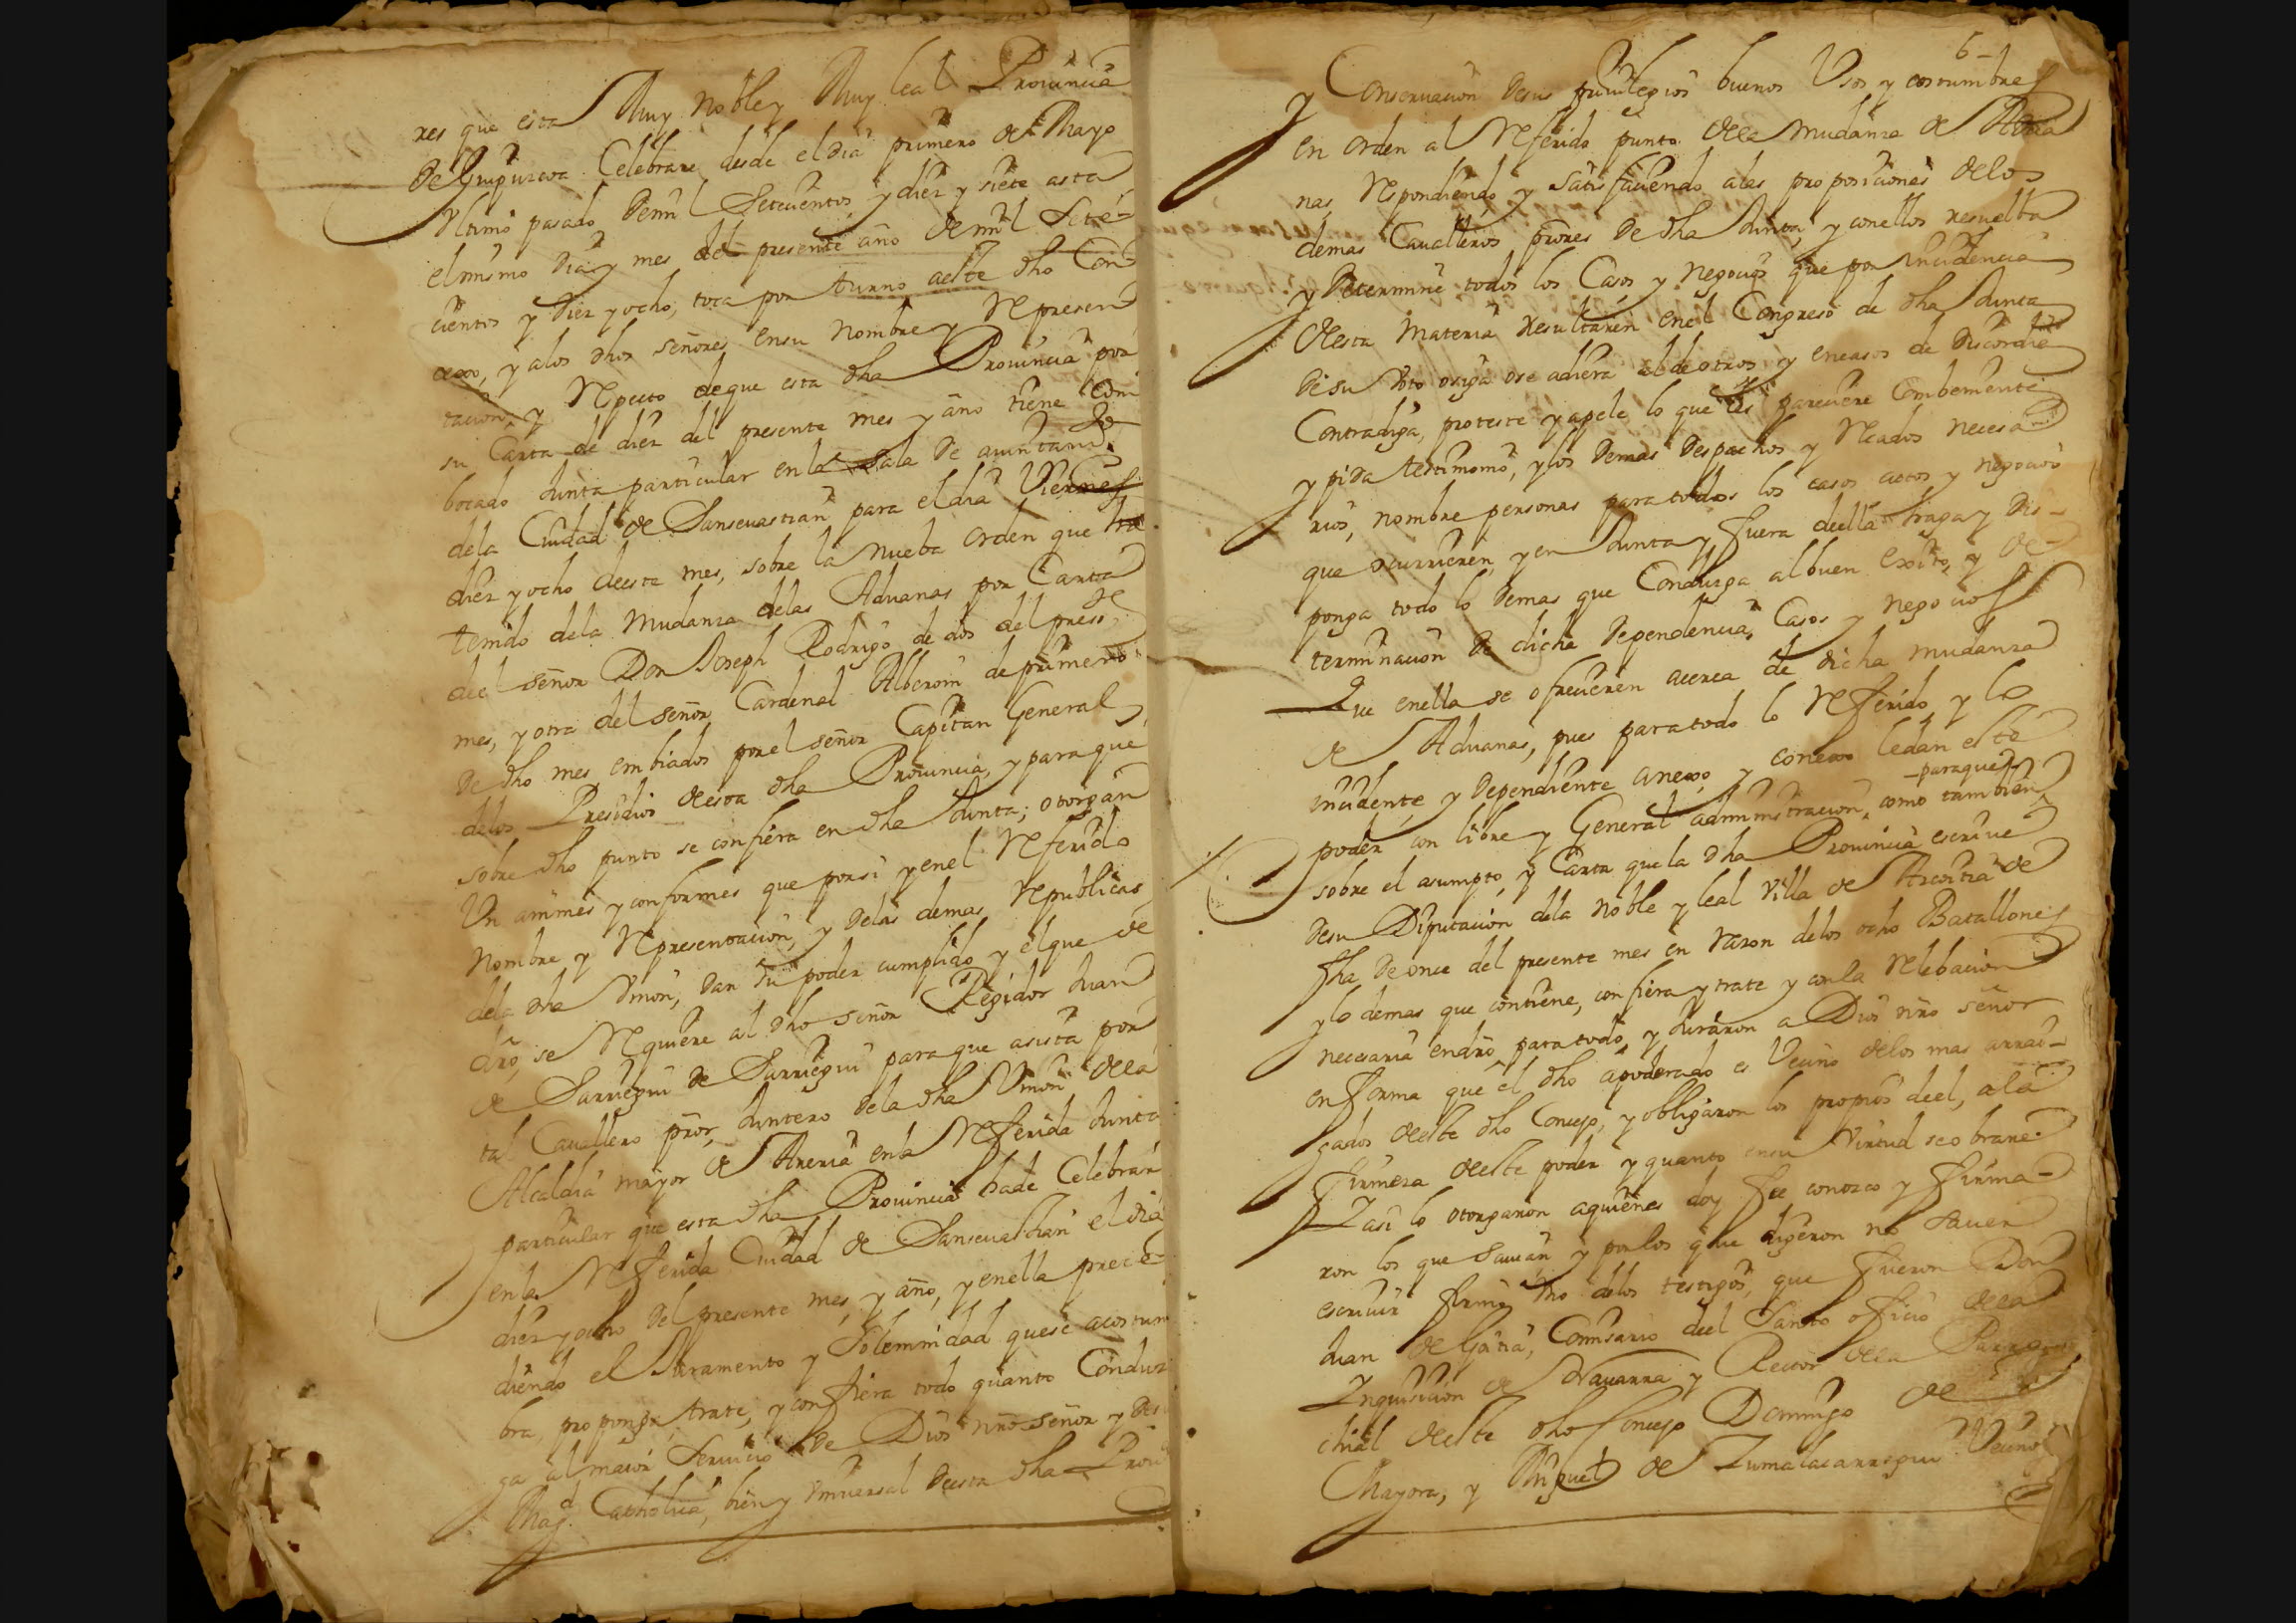 res que esta Muy noble y Muy leal Provincia
de Guipuzcoa Celebrare desde el dia primero de Mayo
Ultimo pasado de mil Setecientos y diez y siete asta
el mismo dia y mes del presente año de mil Sete-
cientos y diez y ocho, toca por turno a este dho Con
cexo, y alos dhos señores ensu nombre y Represen
tacion, y Respecto de que esta dha Provincia por
su Carta de diez del presente mes y año tiene Com
bocado Junta particular en la sala de aiuntam.to
dela Ciudad de Sansevastian para el dia Viernes
diez y ocho deeste mes, sobre la nueba orden que ha
tenido dela Mudanza delas Aduanas por Carta
del señor Don Joseph Rodrigo de dos del press.te
mes, y otra del señor Cardenal Alberoni de primero
de dho mes embiados por el señor Capitan General
delos Presidios desta dha Provincia, y para que
sobre dho punto se confiera en dha Junta; otorgan
Un animes y conformes que porsi y enel Referido
Nombre y Representacion, y delas demas Republicas
dela dha Union, dan su poder cumplido y el que de
dro, se Requiere al dho señor Regidor Juan
de Sarriegui de Sarriegui para que asista por
tal Cavallero pror, Juntero dela dha Union dela
Alcaldia mayor de Areria enla Referida Junta
particular que esta dha Provincia hade Celebrar
enla Referida Ciudad de Sansevastian el dia
diez y ocho del presente mes, y año, y enella prece-
diendo el Juramento y Solemnidad quese acostum
bra, proponga, trate, y confiera todo quanto Conduz
ga al maior Servicio de Dios nro señor y de su
Mag.d Catholica, bien y Universal desta dha Prov
6-
y Conservacion desus privilegios buenos Usos y costumbres
en orden al Referido punto dela mudanza de Adua
nas, Respondiendo y satisfaciendo alas proposiciones delos
demas Cavalleros prores de dha Junta, y conellos resuelba
y Determine todos los Casos y negocios que por Incidencia
desta materia Resultaren enel Congreso de dha Junta
de su Voto osiga ose adiera al de otros, y encasos de discordia
Contradiga, proteste y apele lo que les pareciere Combeniente
y pida testimonio, y los demas despachos y Recados necesa
rios, nombre personas para todos los casos actos y negocios
que ocurrieren, y en Junta y fuera deella haga y dis-
ponga todo lo demas que Conduzga al buen exsito, y de-
terminacion de dicha dependencia, Casos y negocios
Que enella se ofrecieren acerca de dicha mudanza
de Aduanas, pues para todo lo Referido y lo
incidente, y dependiente anexo, y conexo ledan este
-paraque
poder con libre y General administracion, como tambien
sobre el asumpto, y Carta que la dha Provincia escrive
desu Diputacion dela noble y leal Villa de Azcoitia de
fha de once del presente mes en razon delos ocho Batallones
y lo demas que contiene, confiera y trate y conla Relebacion
necesaria endro para todo, y Juraron a Dios nro señor
en forma que el dho apoderado es Vecino delos mas arrai-
gados deeste dho Concejo, y obligaron los propios deel, ala
firmeza deeste poder y quanto ensu Virtud se obrare.
Y asi lo otorgaron aquienes doy fee conozco y firma-
ron los que Savian y porlos que digeron no Saver
escrivir firmo Uno delos testigos, que fueron Don
Juan de Goitia, Comisario del Santo oficio dela
Ynquisicion de Navarra y Rector dela Parro
chial deeste dho Concejo Domingo de
Mayora, y Miguel de Zumalacarregui Vecinos